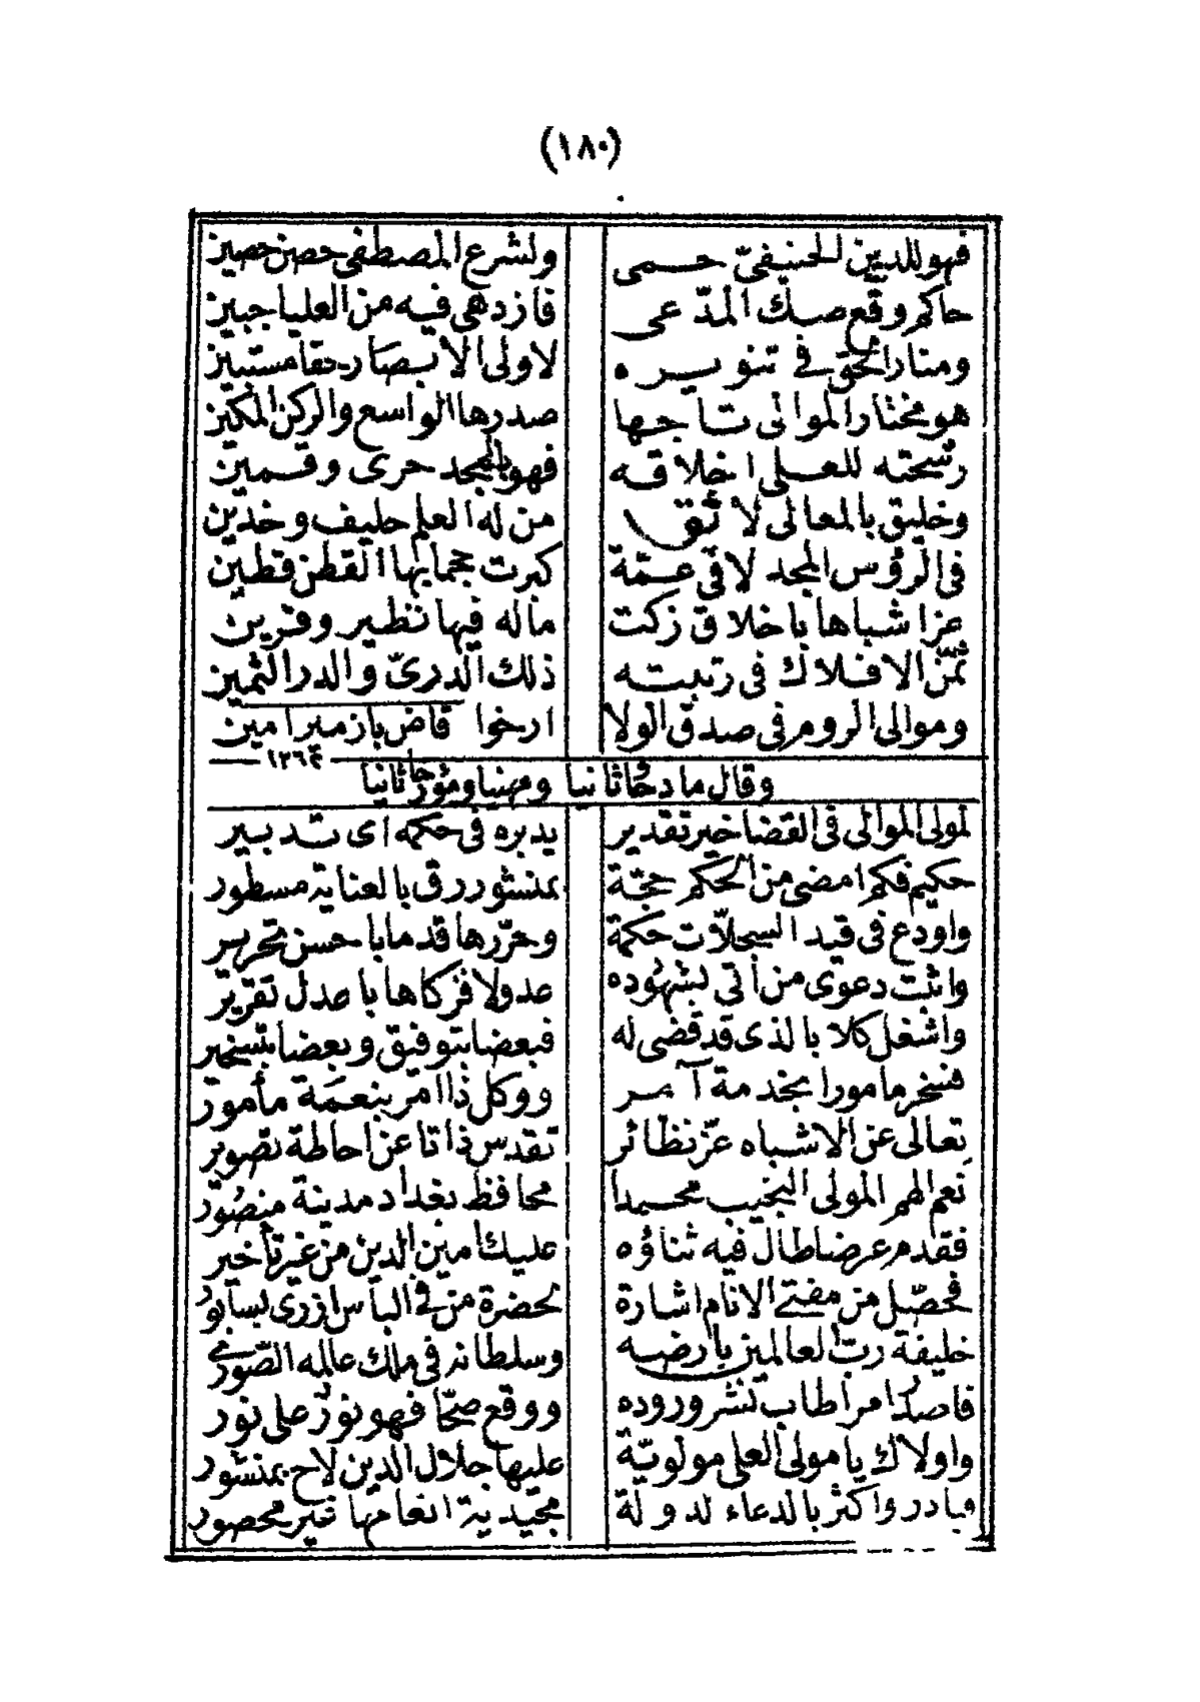 (١٨٠)
فهو للدين الحنيفيّ حمى ولشرع المصطفى حصن حصين
حاكم وقع صك المدّعى فازدهى فيه من العليا جبين
ومنار الحق فى تنويره لاولى الابصار حقا مستبين
هو مختار الموالى تاجها صدرها الواسع والركن المكين
رشحته للعلى اخلاقه فهو بالمجد حرى وقمين
وخليق بالمعالى لائق من له العلم حليف وخدين
فى الرؤس المجد لا فى عمّة كبرت حجما بها القطن قطين
عز اشباها باخلاق زكت ماله فيها نظير وقرين
ثمّن الافلاك فى رتبته ذلك الدرىّ والدر الثمين
وموالى الروم فى صدق الولا ارخوا قاض بازمير امين
١٢٦٤
وقال مادحا ثانيا ومهنيا ومؤرخا ثانيا
لمولى الموالى فى القضا خير تقدير يدبره فى حكمه اى تدبير
حكيم فكم امضى من الحكم حجّة بمنشور رق بالعناية مسطور
واودع فى قيد السجلاّت حكمة وحرّرها قدما باحسن تحرير
واثبت دعوى من أتى بشهوده عدولا فزكاها باعدل تقرير
واشغل كلا بالذى قد قضى له فبعضا بتوفيق وبعضا بتسخير
فسخر مامورا بخدمة آمر ووكل ذا امر بنعمة مأمور
تعالى عن الاشباه عزّ نظائر تقدس ذاتا عن احاطة تصوير
نعم الهم المولى النجيب محمدا محافظ بغداد مدينة منصور
فقدم عرضا طال فيه ثناؤه عليك امين الدين من غير تأخير
فحصّل من مفتى الانام اشارة لحضرة من فى البأس ازرى بسابور
خليفة ربّ العالمين بارضه وسلطانه فى ملك عالمه الصّورى
فاصدر امرا طاب نشر وروده ووقع صحّا فهو نور على نور
واولاك يا مولى العلى مولويّة عليها جلال الدين لاح بمنشور
فبادر واكثر بالدعاء لدولة مجيدية انعامها غير محصور